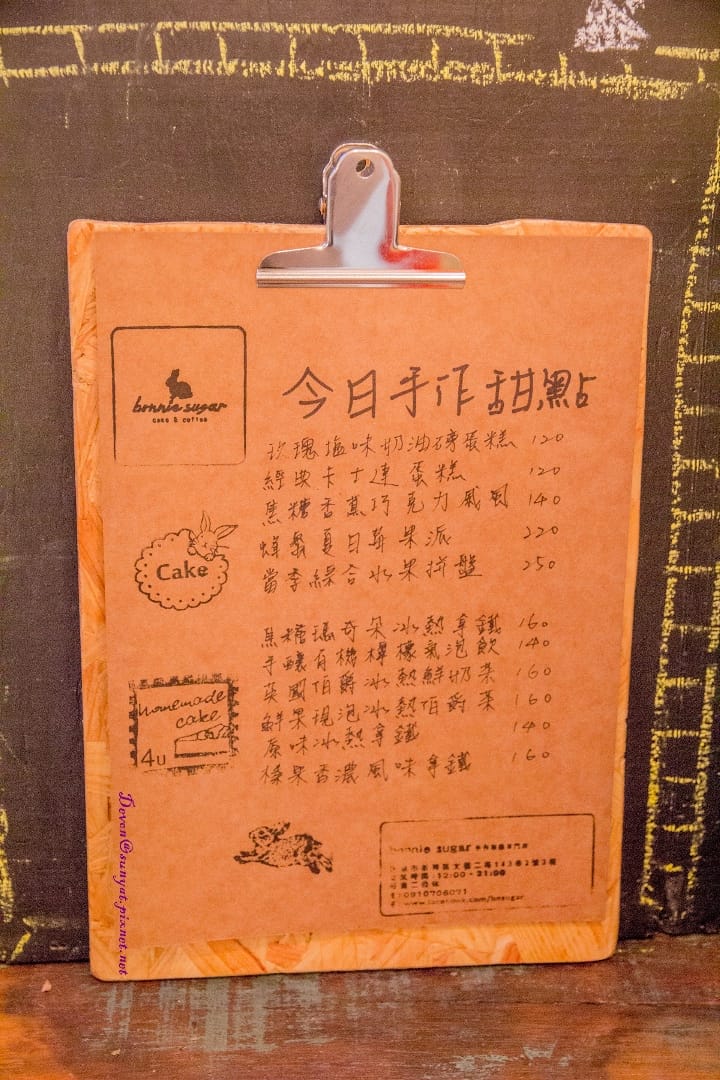 bonnie sugar
cake & coffee
今日手作甜點
玫瑰塩味奶油磚蛋糕 120
經典卡士達蛋糕 120
焦糖香蕉巧克力戚風 140
蜂蜜夏日蘋果派 220
當季綜合水果拼盤 250
焦糖瑪奇朵冰熱拿鐵 160
手釀有機檸檬氣泡飲 140
英國伯爵冰熱鮮奶茶 160
鮮果現泡冰熱伯爵茶 160
原味冰熱拿鐵 140
榛果香濃風味拿鐵 160
Cake
homemade
cake
4u
bonnie sugar
12:00-21:00
0910706071
Devon@sunyat.pixnet.net